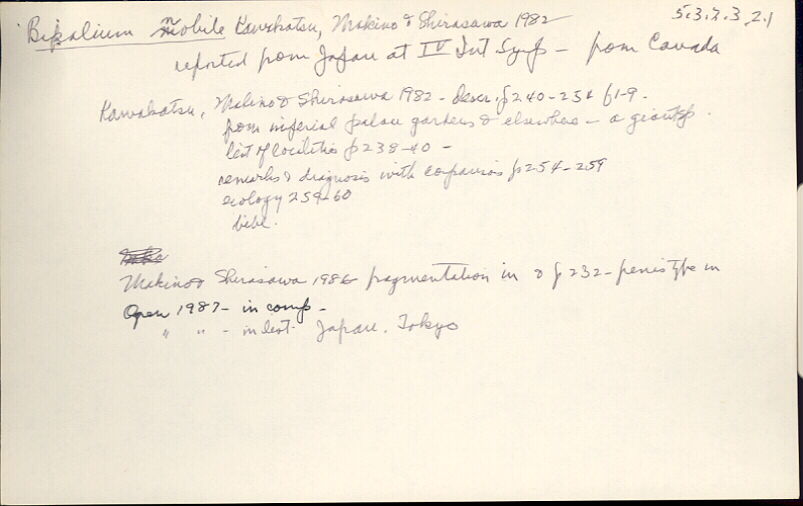 5.3.2.3.2.1
Bipalium nobile Kawakatsu, Makino & Shirasawa 1982
reported from Japan at IV Int Symp - from Canada
Kawakatsu, Makino & Shirasawa 1982 - descr. p240-254 f1-9.
from imperial palace gardens & elsewhere - a giant sp.
list of localities p238-40 -
remarks & diagnosis with comparisons p254-259
ecology 259-60
bibl.
Makino & Shirasawa 1986 fragmentation in & p232 - penis type in
Ogren 1987 - in comp -
" " - in list. Japan. Tokyo